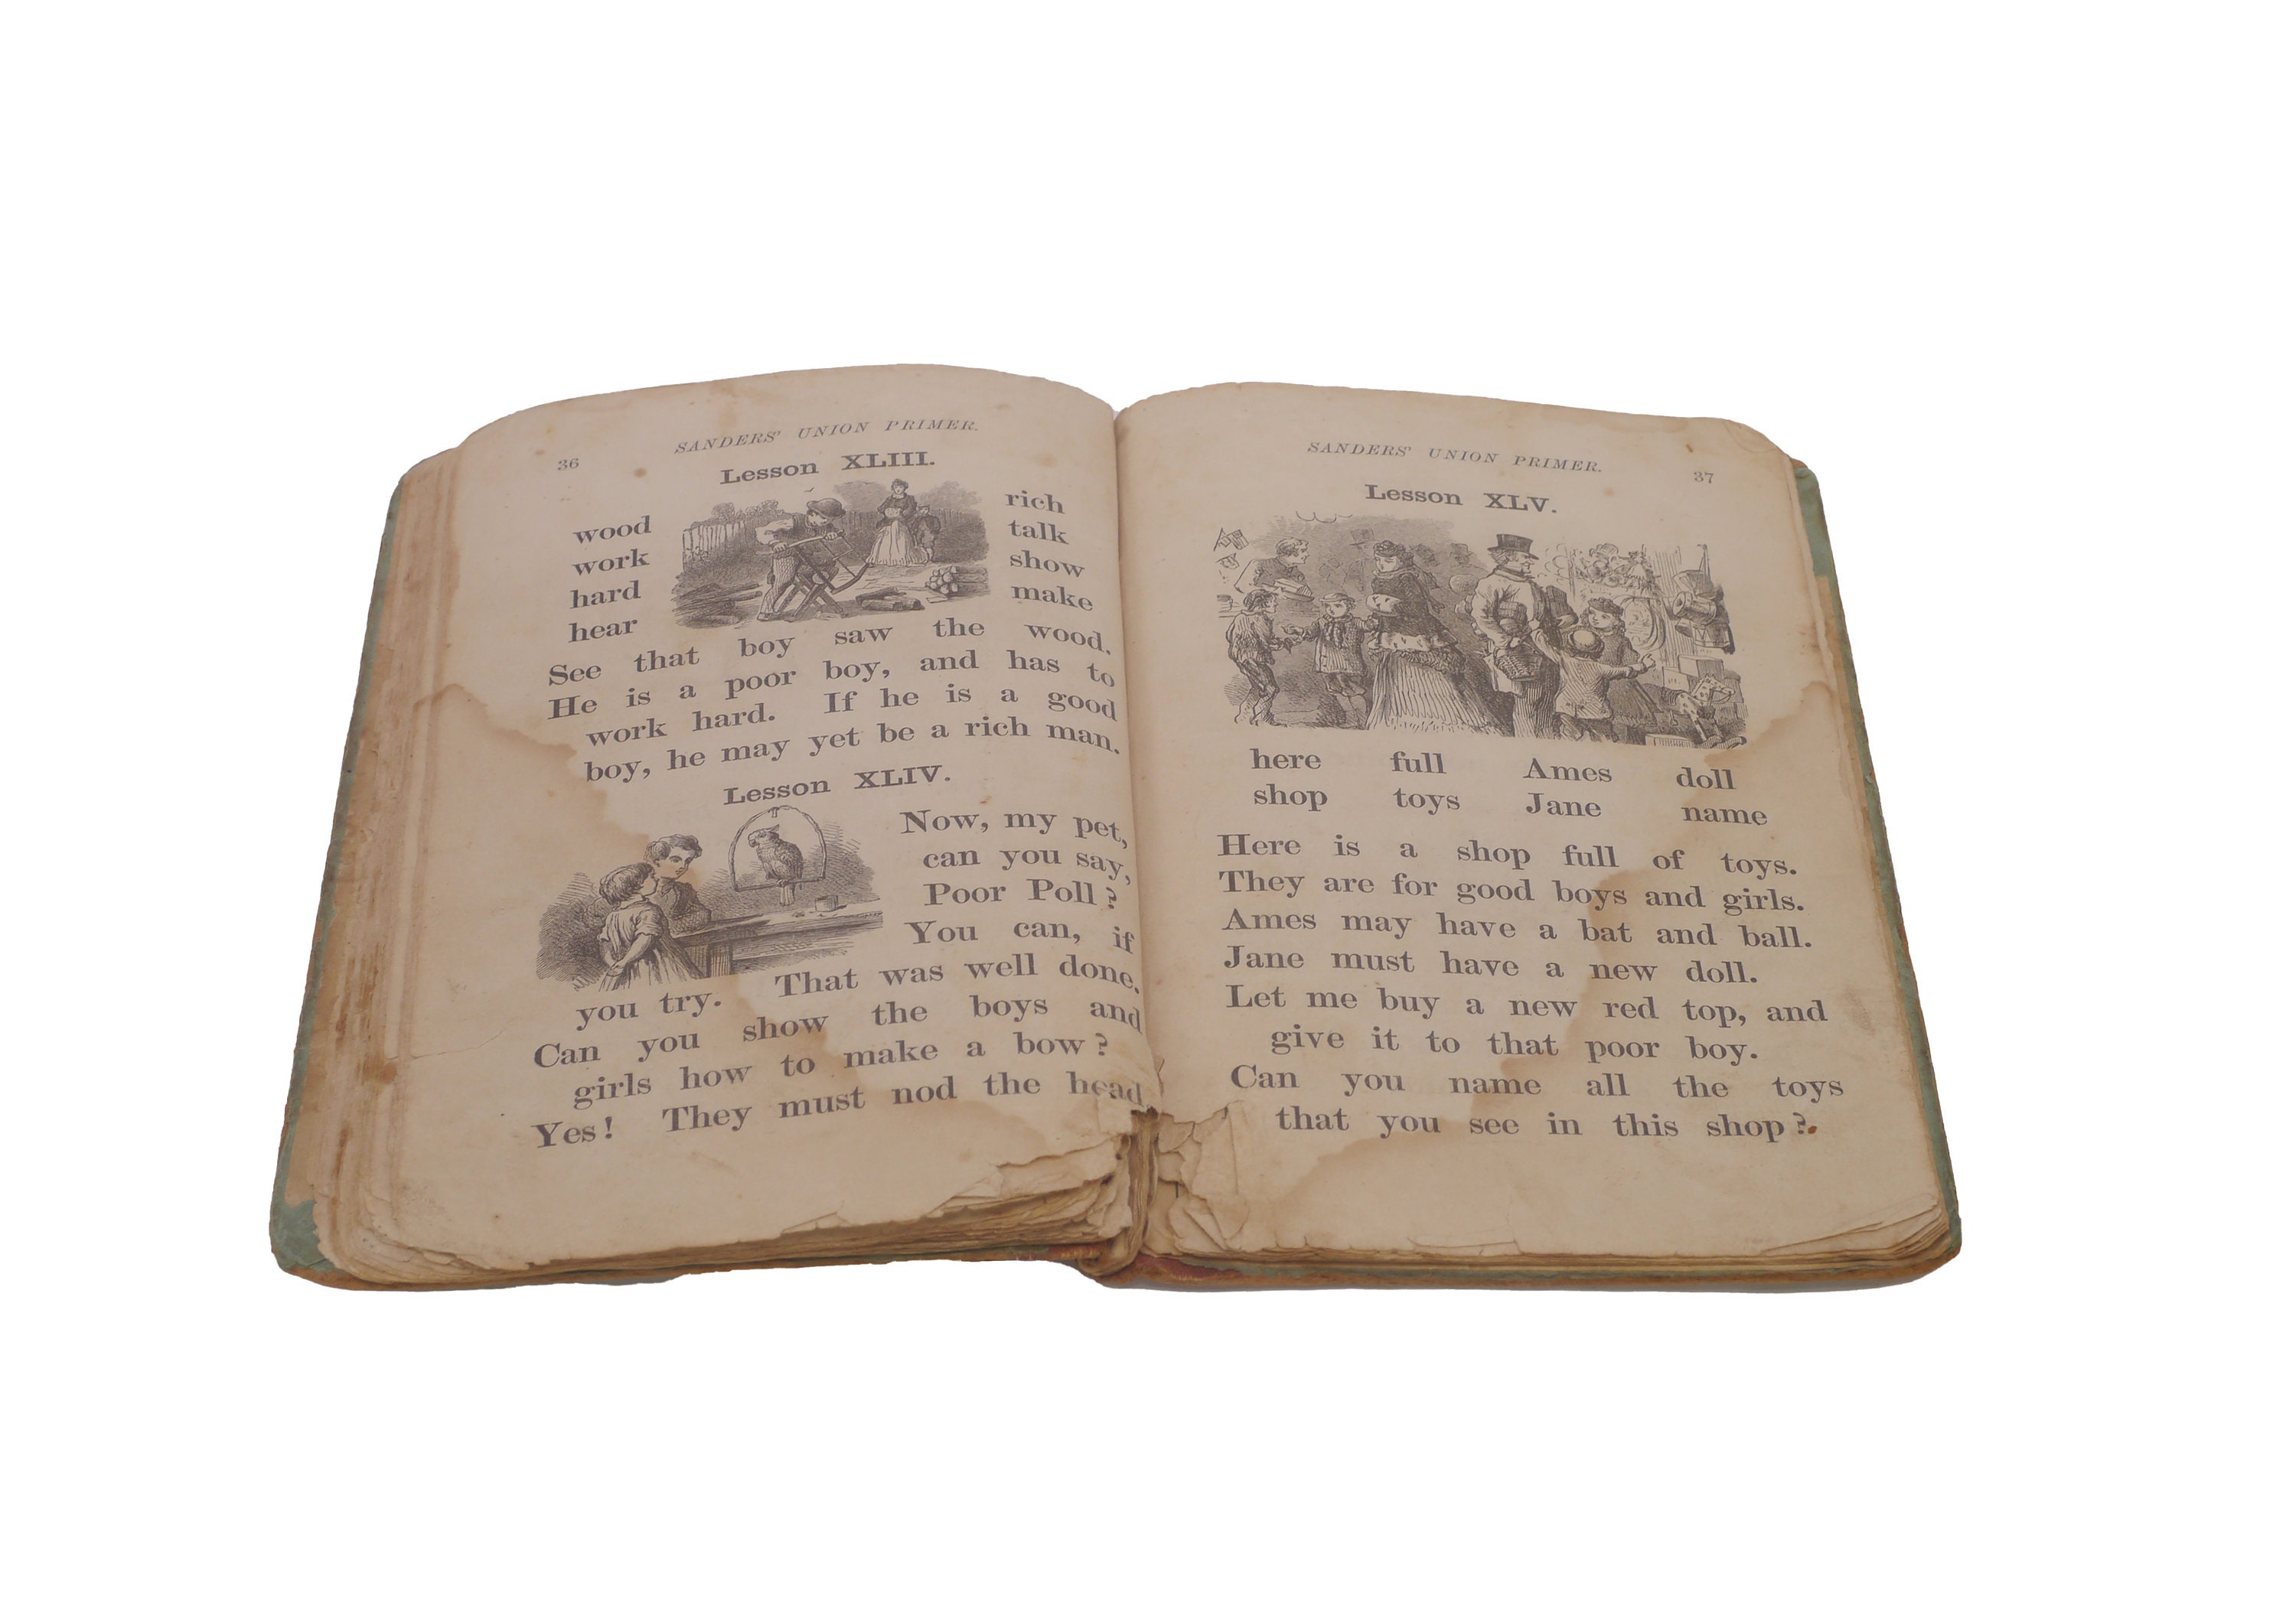 36
SANDERS' UNION PRIMER.
Lesson XLIII.
wood
work
hard
hear
rich
talk
show
make
See that boy saw the wood.
He is a poor boy, and has to
work hard. If he is a good
boy, he may yet be a rich man.
Lesson XLIV.
Now, my pet,
can you say,
Poor Poll?
You can, if
you try. That was well done.
Can you show the boys and
girls how to make a bow?
Yes! They must nod the head.
SANDERS' UNION PRIMER.
37
Lesson XLV.
here full Ames doll
shop toys Jane name
Here is a shop full of toys.
They are for good boys and girls.
Ames may have a bat and ball.
Jane must have a new doll.
Let me buy a new red top, and
give it to that poor boy.
Can you name all the toys
that you see in this shop?